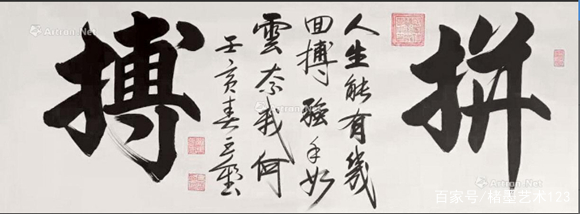 拼
人生能有幾
回搏強手如
雲奈我何
壬寅春
搏
Artron.Net
Artron.Net
百家号/楮墨艺术123